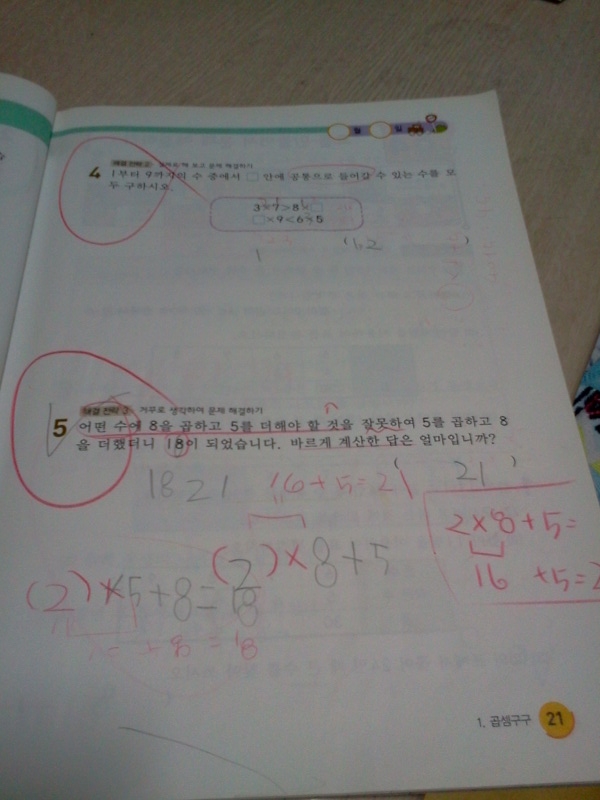 월 일
4 해결 전략 2 결과로/해 보고 문제 해결하기
1부터 9까지의 수 중에서 □ 안에 공통으로 들어갈 수 있는 수를 모
두 구하시오.
3×7>8×□
□×9<6×5
( 1, 2 )
1
5 해결 전략 3 거꾸로 생각하여 문제 해결하기
어떤 수에 8을 곱하고 5를 더해야 할 것을 잘못하여 5를 곱하고 8
을 더했더니 18이 되었습니다. 바르게 계산한 답은 얼마입니까?
( 21 )
18 21 16+5=21
2×8+5=
16 +5=2
(2)×8+5
(2)×5+8=18
+8=18
1. 곱셈구구 21